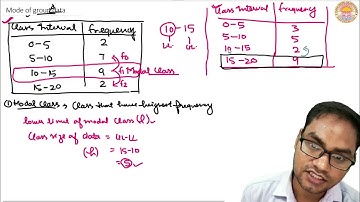 Mode of group data
A
Class Interval Frequency
0-5 2
5-10 7 f0
10-15 9 f1 Modal Class
15-20 2 f2
10-15
LL UL
Class Interval Frequency
0-5 3
5-10 5
10-15 2
15-20 9
① Modal Class → Class that have heighest frequency
lower limit of modal class (l).
Class size of data = UL-LL
(h) = 15-10
= 5